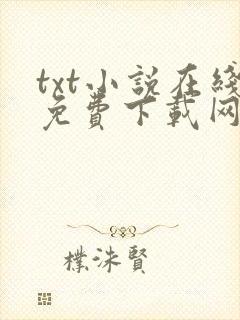 txt小說在綫
免費下載网
樸洙賢